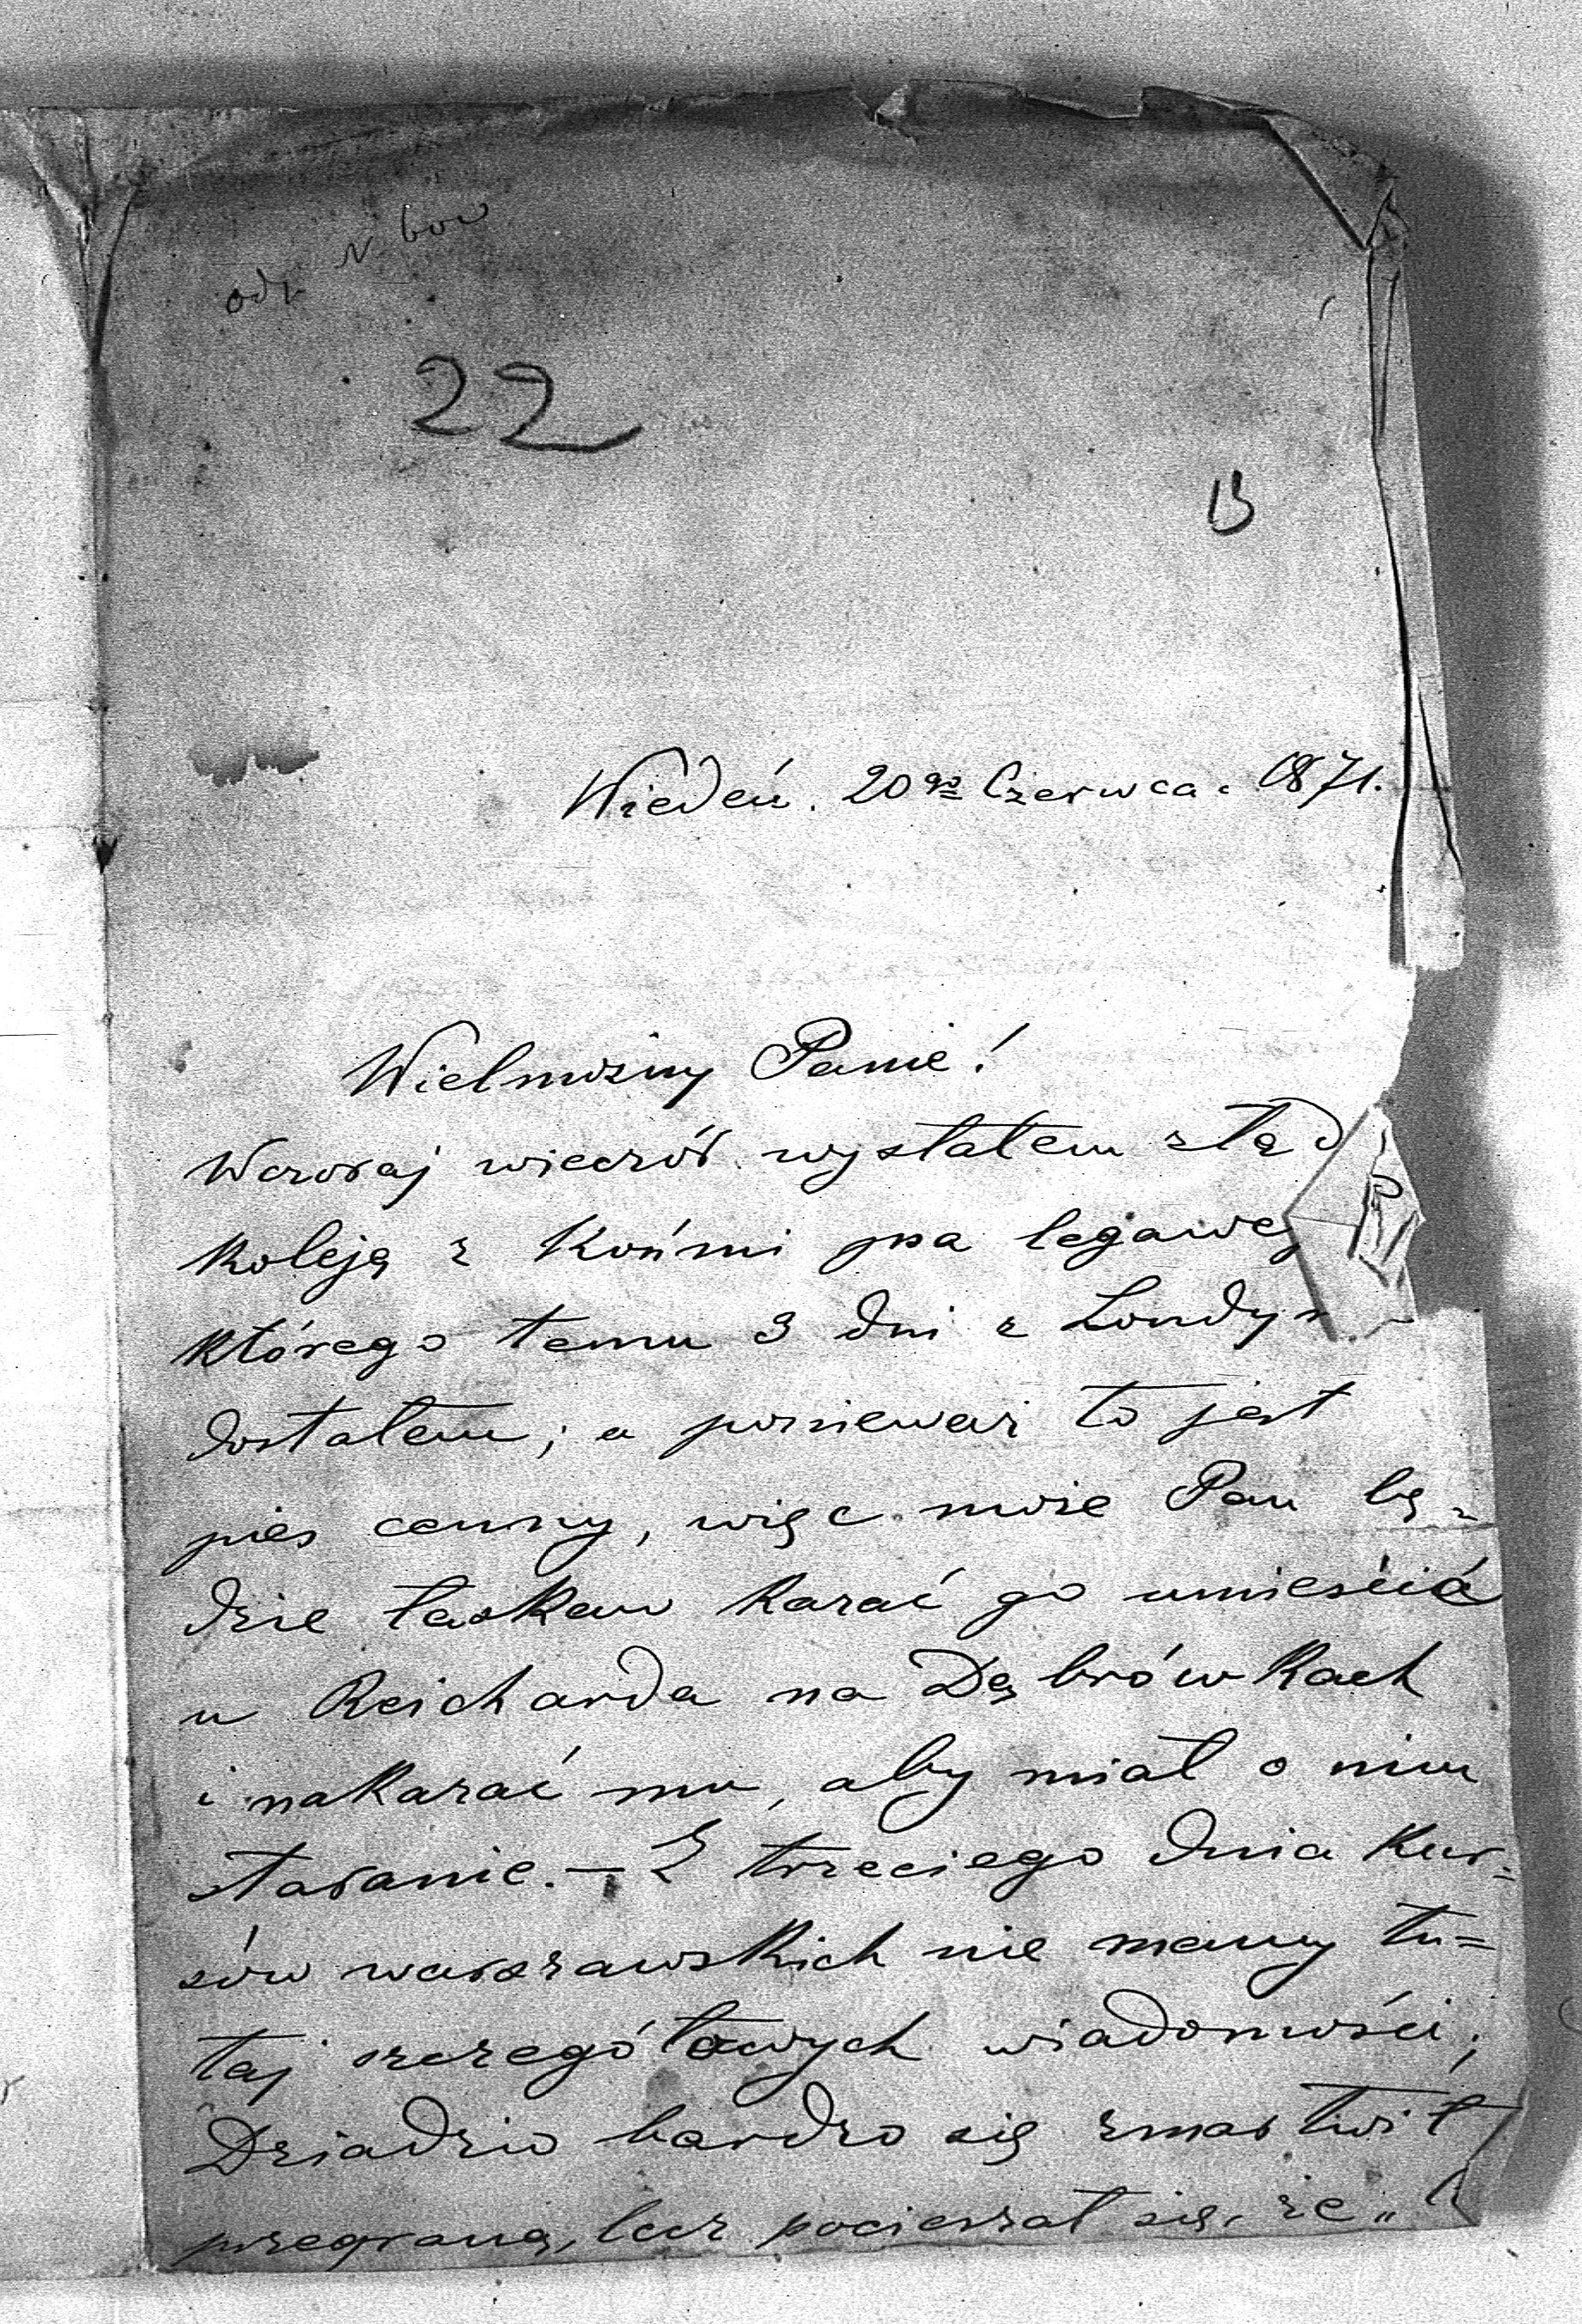 22
B
Wiedeń. 20go Czerwca. 1871.
Wielmożny Panie!
Wczoraj wieczór wysłałem ztąd
koleją z Końmi psa legaweg
którego temu 3 dni z Londyn
dostałem; a ponieważ to jest
pies cenny, więc może Pan bę=
dzie łaskaw kazać go umieścić
u Reicharda na Dąbrówkach
i nakazać mu, aby miał o nim
staranie. — Z trzeciego dnia kur=
sów warszawskich nie mamy tu=
taj szczegółowych wiadomości;
Dziadzio bardzo się zmartwił
przegraną, lecz pocieszał się, że „